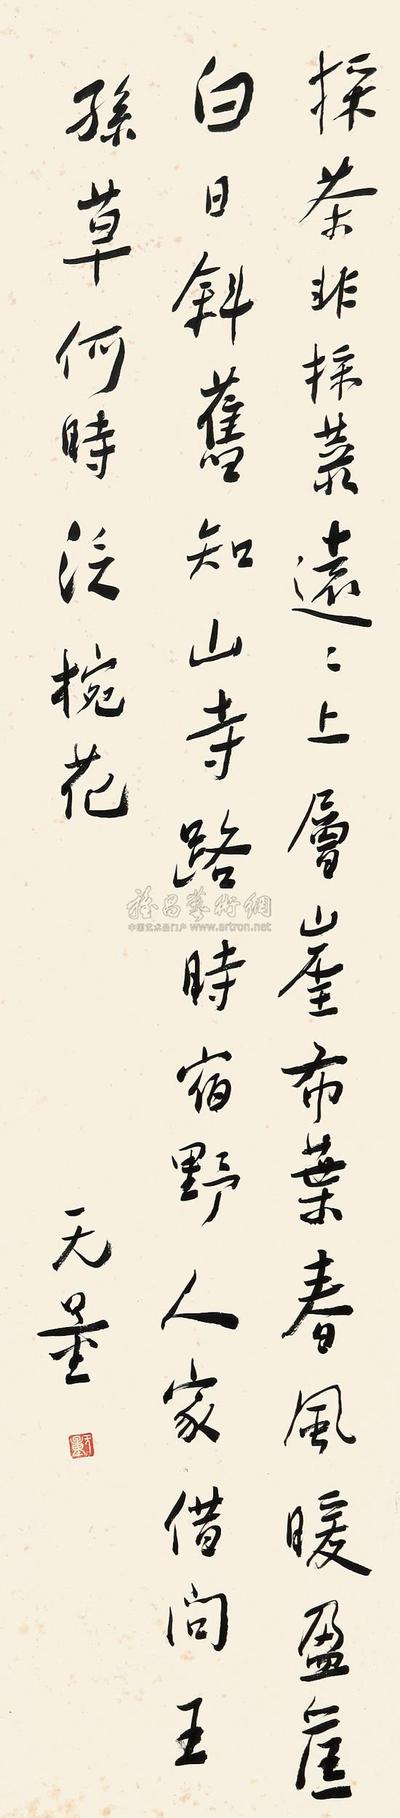 採茶非採菉遠〻上層崖布葉春風暖盈筐
白日斜舊知山寺路時宿野人家借問王
孫草何時泛椀花
无量
雅昌藝術網
中国艺术品门户 www.artron.net
无量